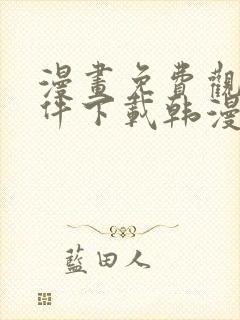 漫畫免費觀
件下載韩漫
藍田人